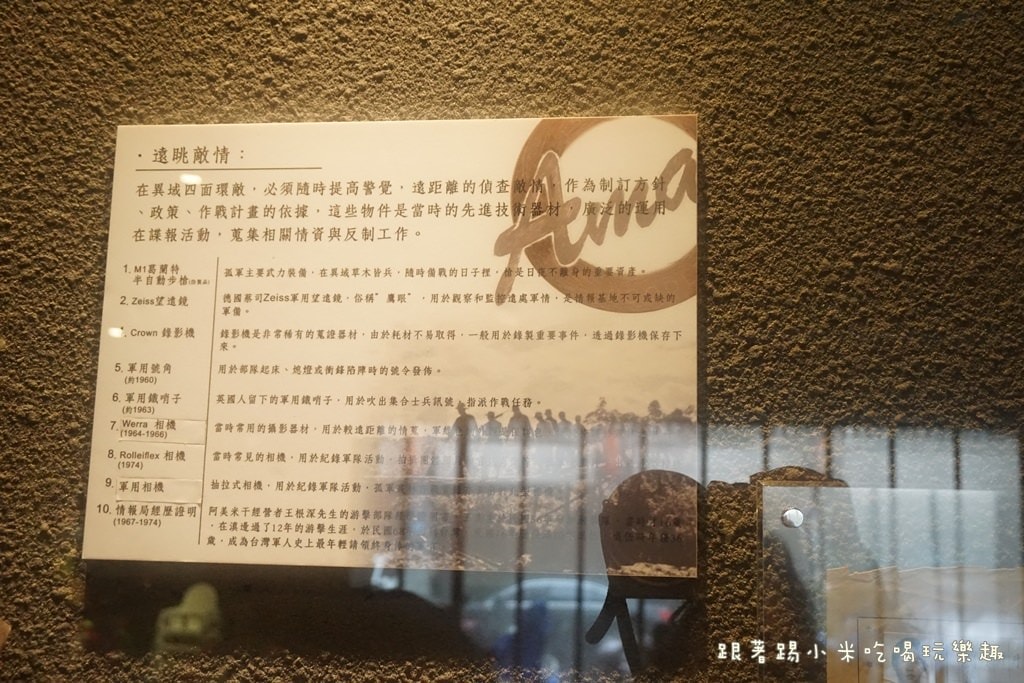 ・遠眺敵情：
在異域四面環敵，必須隨時提高警覺，遠距離的偵查敵情，作為制訂方針
、政策、作戰計畫的依據，這些物件是當時的先進技術器材，廣泛的運用
在諜報活動，蒐集相關情資與反制工作。
1. M1葛蘭特
半自動步槍
孤軍主要武力裝備，在異域草木皆兵，隨時備戰的日子裡，槍是日夜不離身的重要資產。
2. Zeiss望遠鏡
德國蔡司Zeiss軍用望遠鏡，俗稱”鷹眼”，用於觀察和監控遠處軍情，是情報基地不可或缺的
軍備。
Crown 錄影機
錄影機是非常稀有的蒐證器材，由於耗材不易取得，一般用於錄製重要事件，透過錄影機保存下
來。
5. 軍用號角
(約1960)
用於部隊起床、熄燈或衝鋒陷陣時的號令發佈。
6. 軍用鐵哨子
(約1963)
英國人留下的軍用鐵哨子，用於吹出集合士兵訊號，指派作戰任務。
7. Werra 相機
(1964-1966)
當時常用的攝影器材，用於較遠距離的情蒐，軍
8. Rolleiflex 相機
(1974)
當時常見的相機，用於紀錄軍隊活動，
9. 軍用相機
抽拉式相機，用於紀錄軍隊活動，孤軍
10. 情報局經歷證明
(1967-1974)
阿美米干經營者王根深先生的游擊部隊
，在滇邊過了12年的游擊生涯，於民國
歲，成為台灣軍人史上最年輕請領終身
Ama
跟著踢小米吃喝玩樂趣